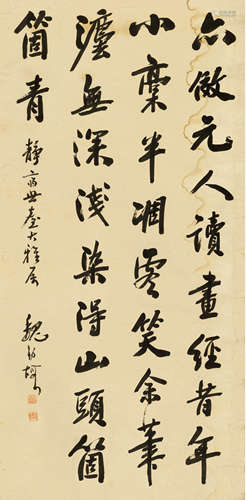 亦倣元人讀畫經昔年
小稾半凋零笑余筆
灋無深淺染得山頭箇
箇青
靜齋世臺大雅屬
魏